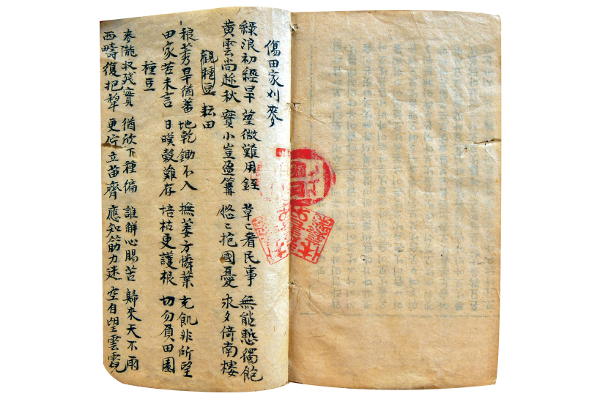 傷田家刈麥
綠浪初經旱 望微難用銍 草〻看民事 無能愁獨飽
黃雲尚趂秋 實小豈盈篝 悠〻抱國憂 永夕倚南樓
觀 耘田
稂莠旱猶蕃 地乾鋤不入 撫萎方憐葉 充飢非所望
田家苦未言 日暵穀難存 培枯更護根 切勿負田園
種豆
麥隴收殘實 猶欣下種偏 誰解心賜苦 歸來天不雨
西疇復把犂 更佇立苗齊 應知筋力迷 空自望雲霓